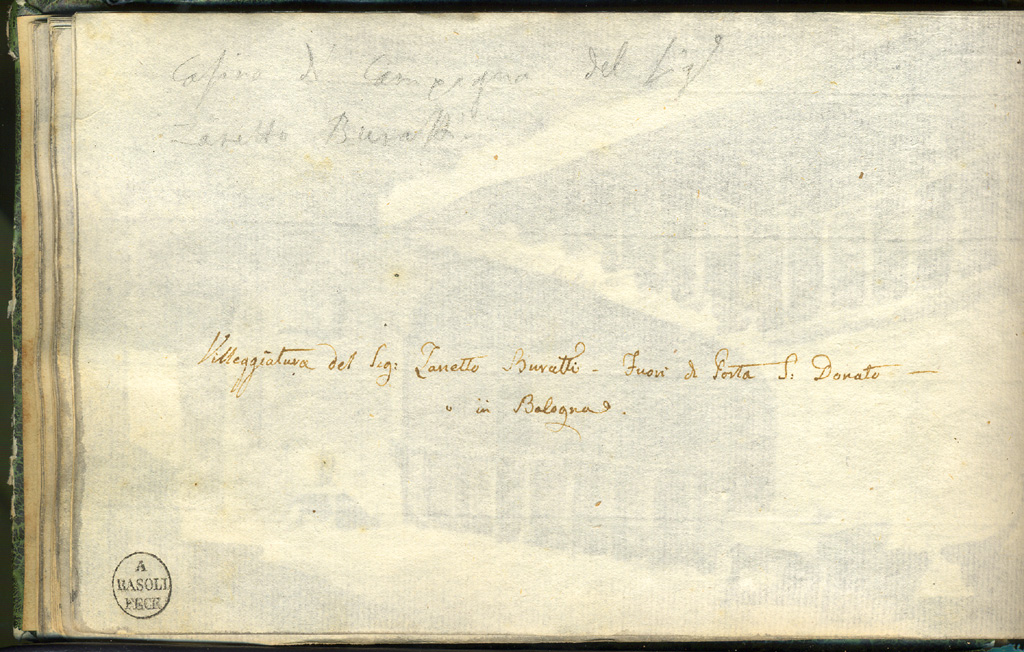 Casino di Campagna del Sig.e
Zanetto Buratti.
Villeggiatura del Sig: Zanetto Buratti - Fuori di Porta S: Donato —
in Bologna.
A
BASOLI
FECE